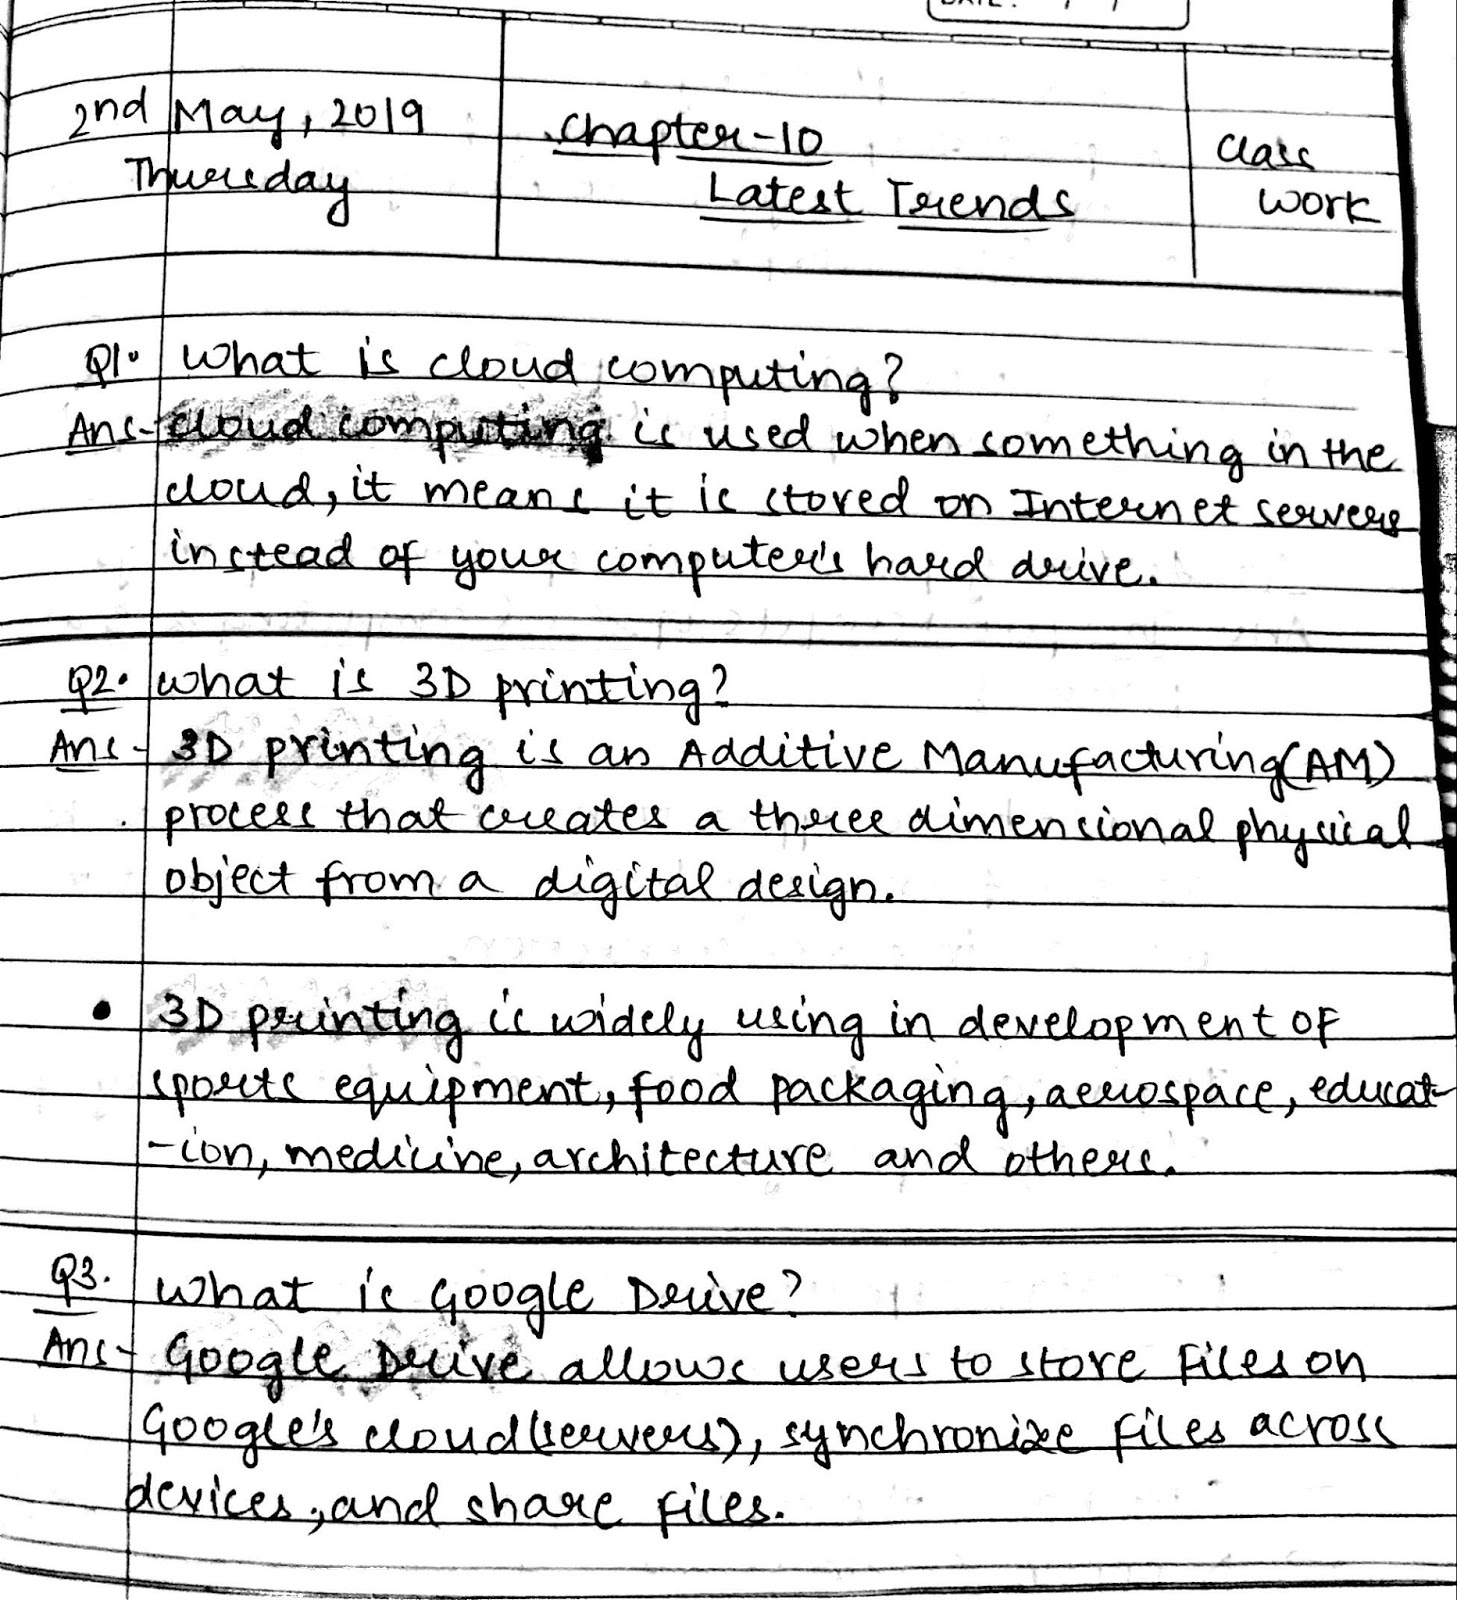 DATE: / /
2nd May, 2019
Thursday
Chapter-10
Latest Trends
Class
Work
Q1. What is cloud computing?
Ans- Cloud computing is used when something in the
cloud, it means it is stored on Internet servers
instead of your computer's hard drive.
Q2. What is 3D printing?
Ans- 3D printing is an Additive Manufacturing(AM)
process that creates a three dimensional physical
object from a digital design.
• 3D printing is widely using in development of
sports equipment, food packaging, aerospace, educat-
-ion, medicine, architecture and others.
Q3. What is Google Drive?
Ans- Google Drive allows users to store files on
Google's cloud(servers), synchronize files across
devices, and share files.